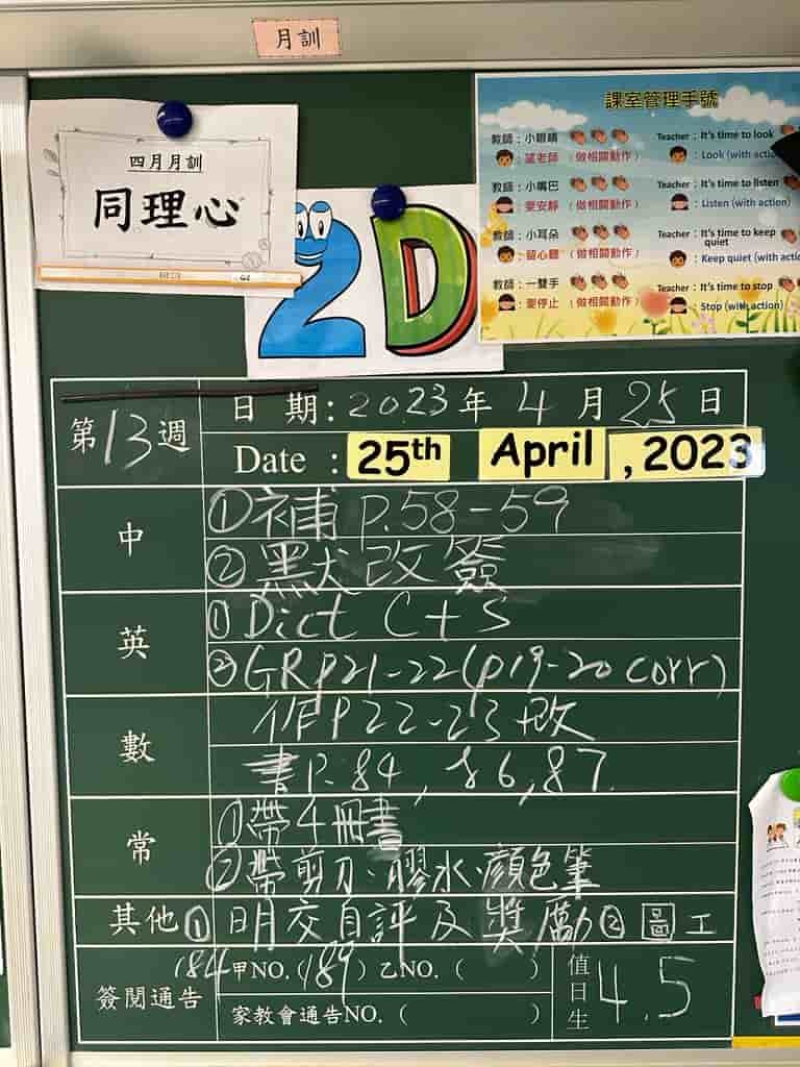 月訓
四月月訓
同理心
2D
課室管理手號
教師：小眼睛
望老師 （做相關動作）
Teacher : It's time to look
: Look (with actio
教師：小嘴巴
要安靜 （做相關動作）
Teacher : It's time to listen
: Listen (with action)
教師：小耳朵
留心聽 （做相關動作）
Teacher : It's time to keep
quiet
: Keep quiet (with actio
教師：一雙手
要停止 （做相關動作）
Teacher : It's time to stop
: Stop (with action)
第13週
日 期: 2023年 4月25日
Date : 25th April , 2023
中
①補 P.58-59
②默改簽
英
①Dict C+S
②GRP21-22(p19-20 corr)
數
作P22-23+改
書P.84, 86,87.
常
①帶4冊書
②帶剪刀、膠水、顏色筆
其他 ① 明交自評及獎勵 ② 圖工
簽閱通告
184 甲NO.(189) 乙NO. ( )
家教會通告NO. ( )
值日生 4.5